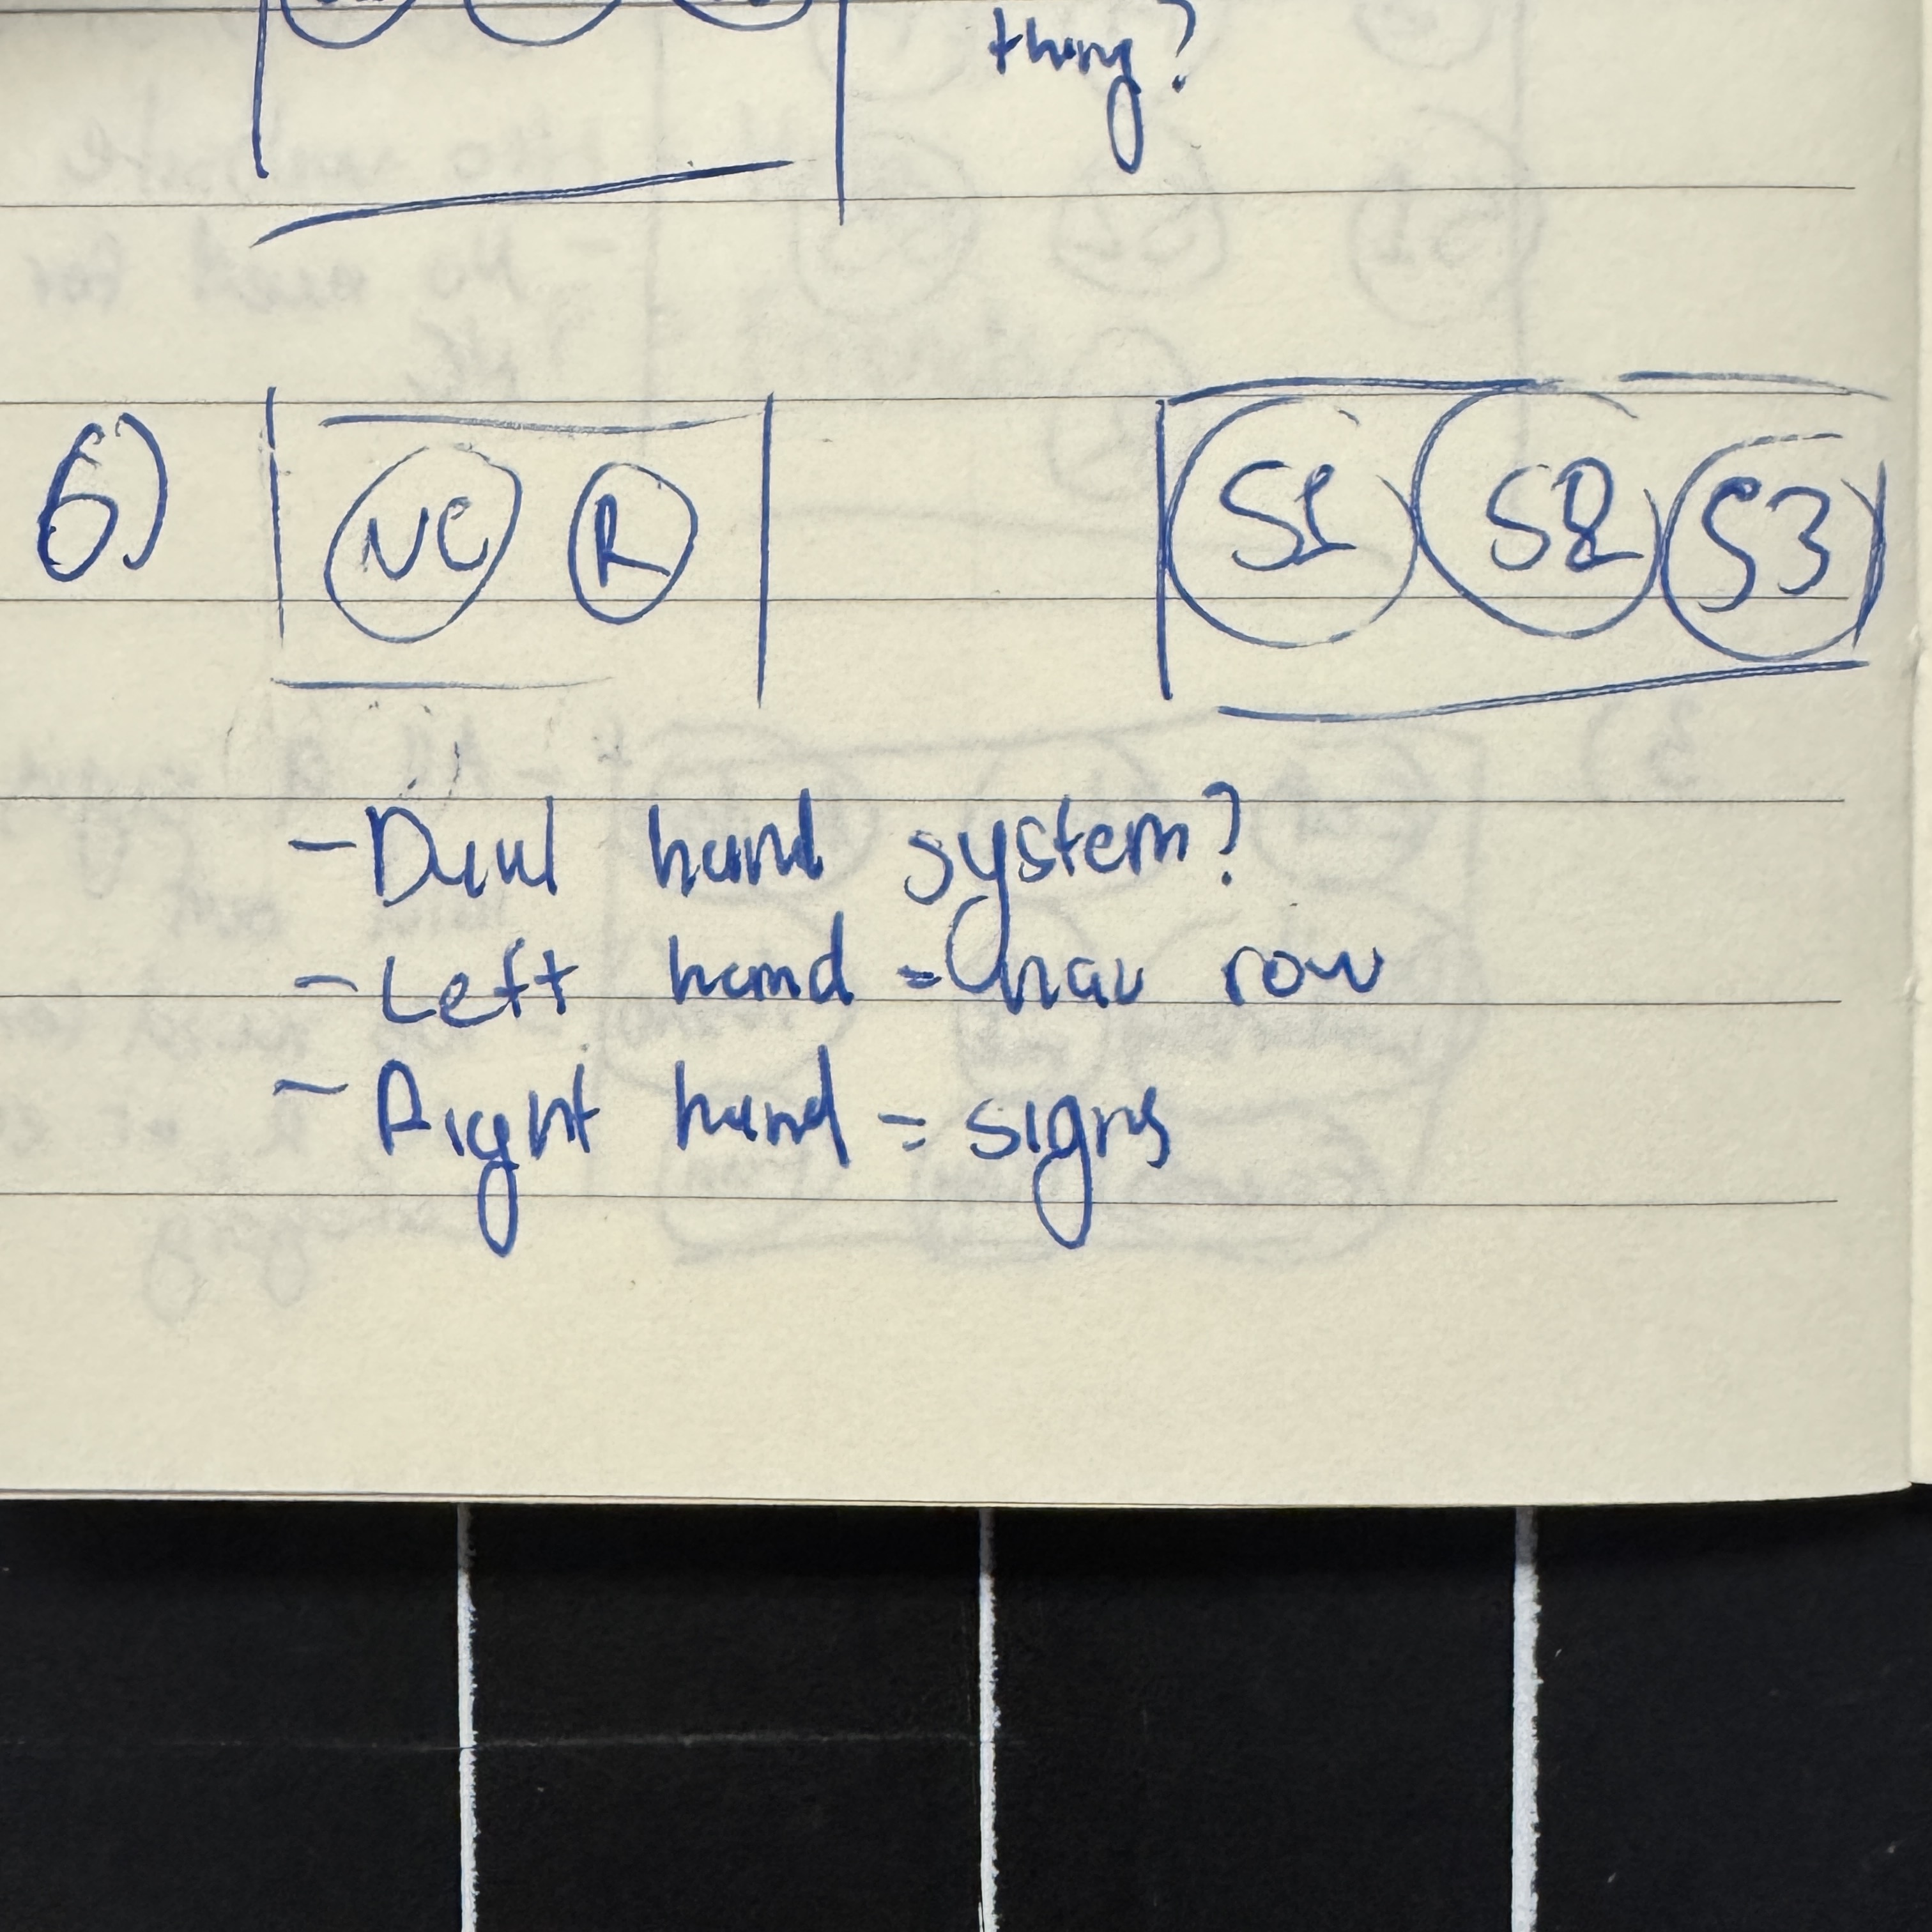 thing?
6) NC R S1 S2 S3
- Dual hand system?
- Left hand = nav row
- Right hand = signs